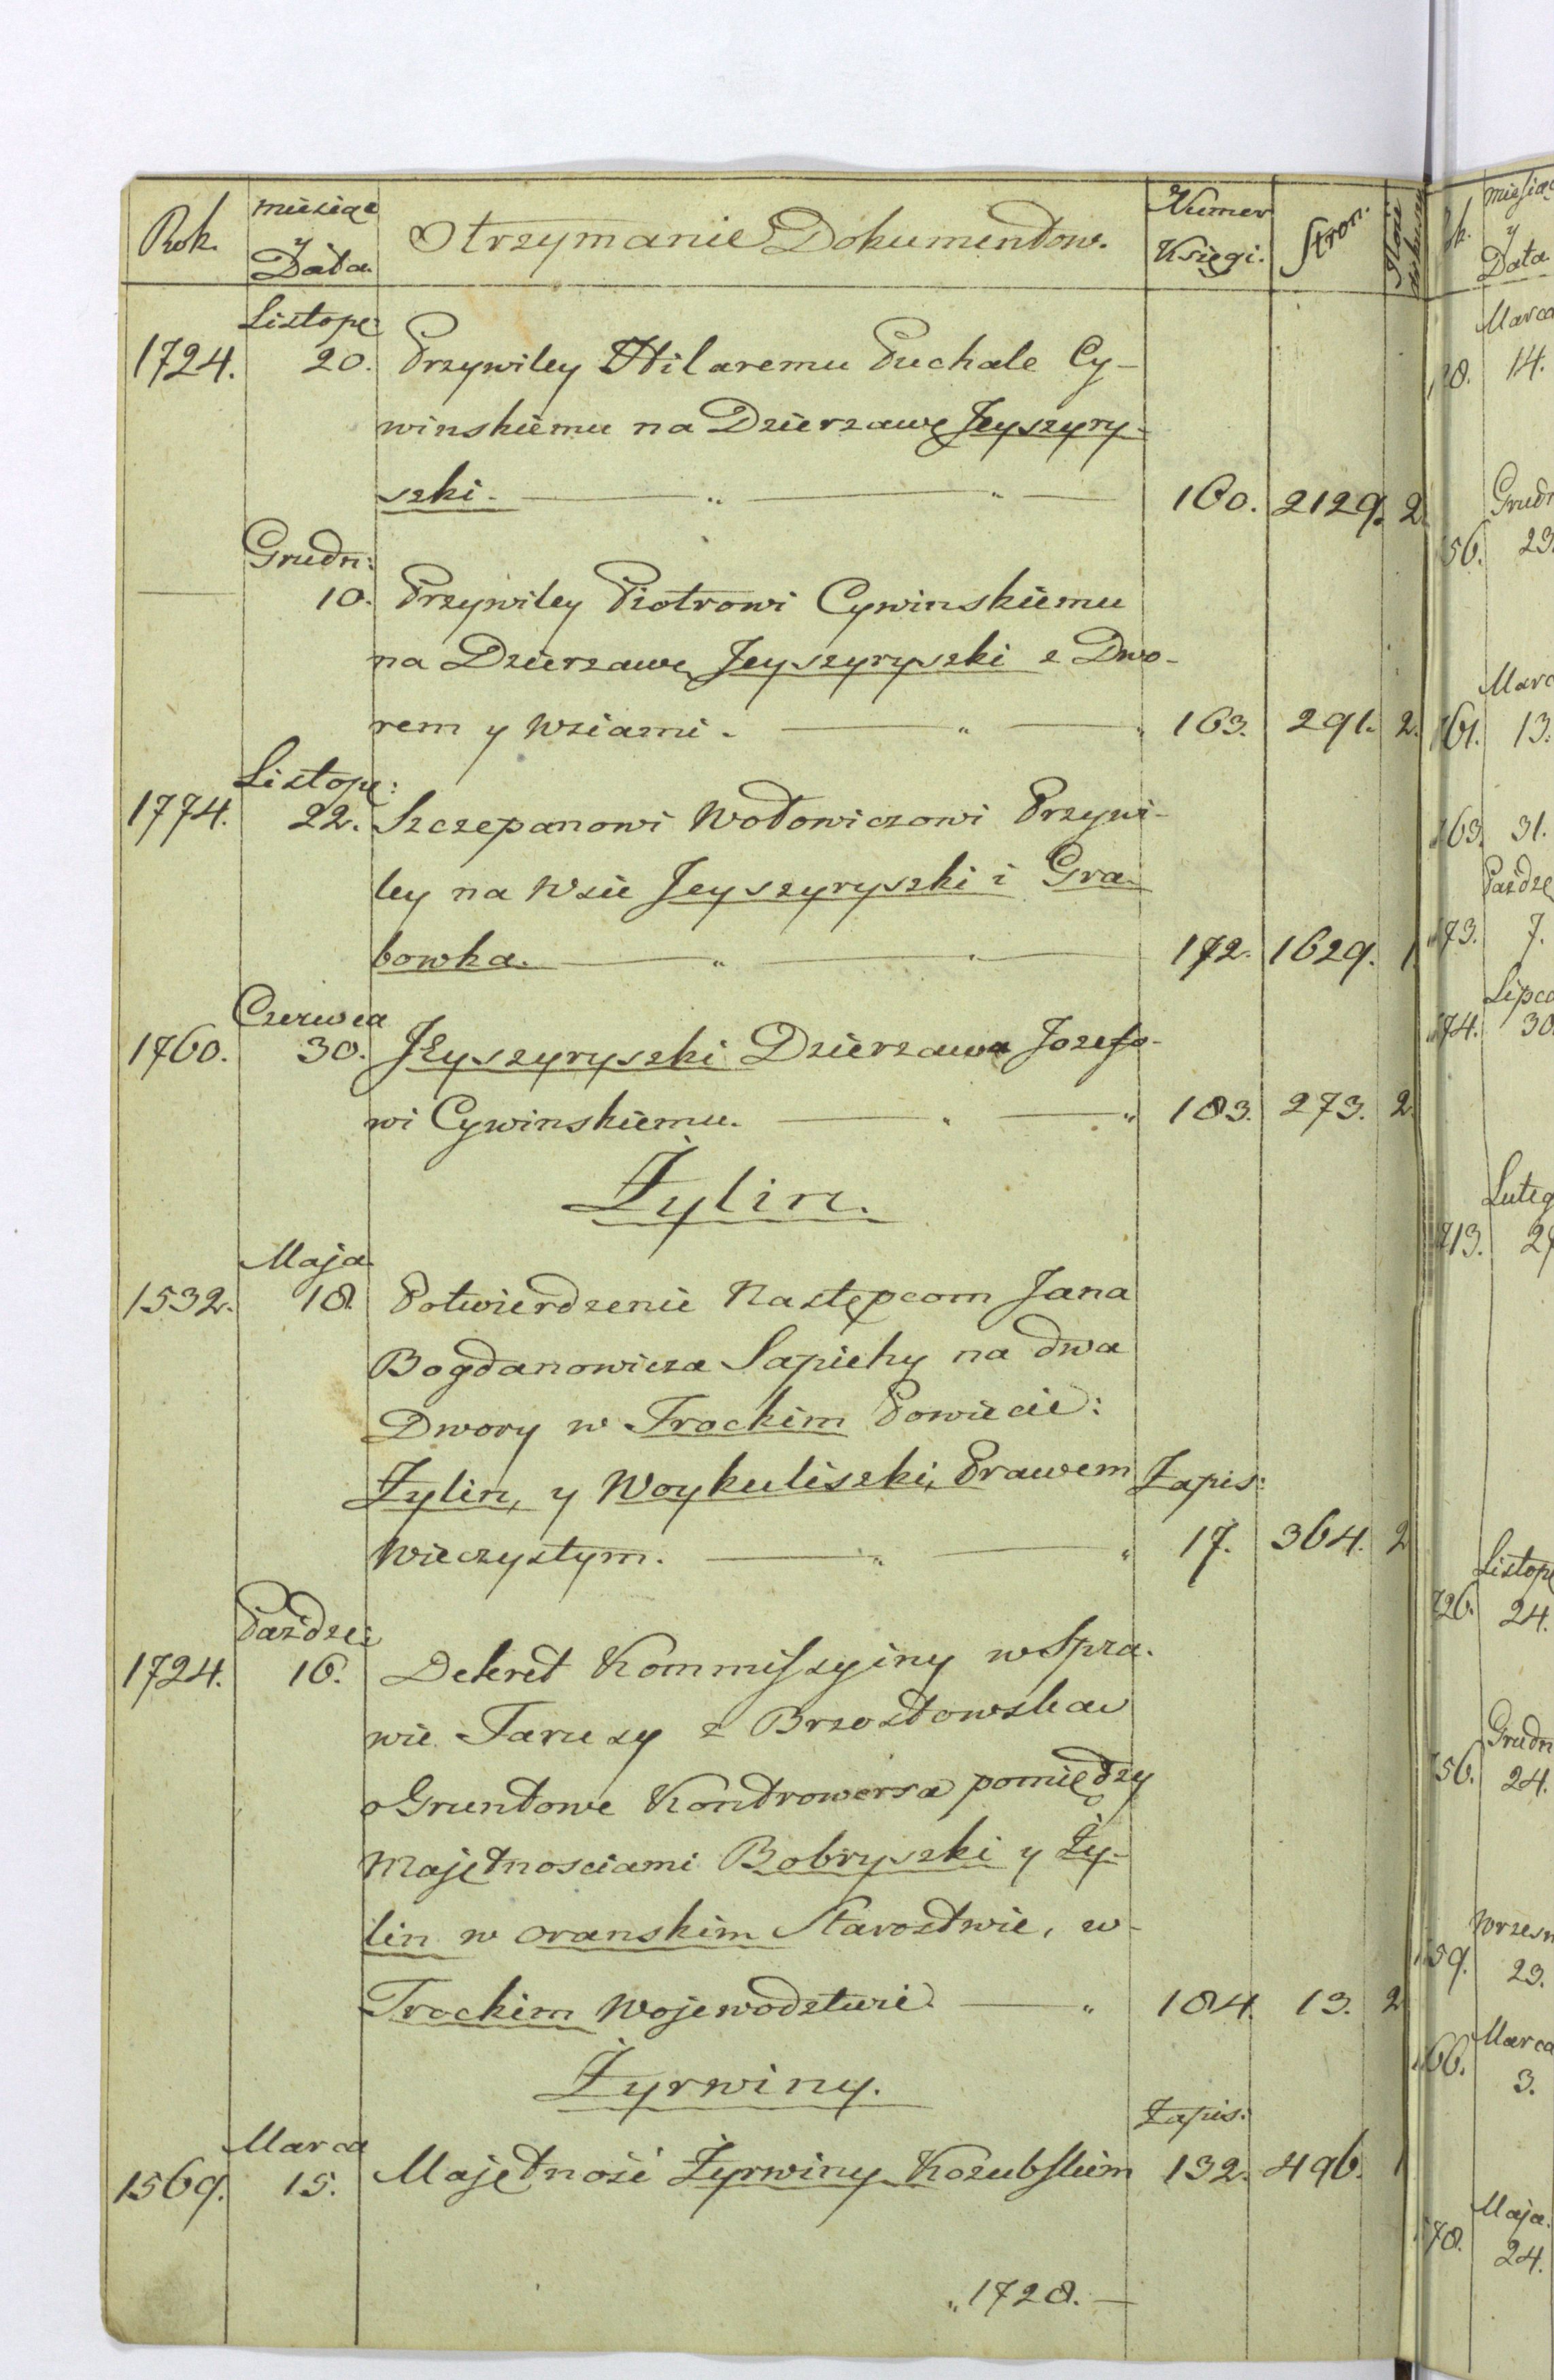 Rok. | miesiąc y Data. | Otrzymanie Dokumentow. | Numer Księgi. | Stron.
Listopę:
1724. | 20. | Przywiley Hilaremu Puchale Cy-
winskiemu na Dzierzawę Jeyszyry-
szki. | 160. | 2129. | 2.
Grudn:
10. | Przywiley Piotrowi Cywinskiemu
na Dzierzawę Jeyszyryszki z Dwo-
rem y Wsiami. | 163. | 291. | 2.
Listopę:
1774. | 22. | Szczepanowi Wołowiczowi Przywi-
ley na Wsie Jeyszyryszki i Gra-
bowka. | 172. | 1629. | 1
Czerwca
1760. | 30. | Jżyszyryszki Dzierzawa Jozefo-
wi Cywinskiemu. | 183. | 273. | 2.
Żylin.
Maja
1532. | 18. | Potwierdzenie Następcom Jana
Bogdanowicza Sapiehy na dwa
Dwory w Trockim Powiecie:
Żylin, y Woykuliszki, Prawem | Zapis:
Wieczystym. | 17. | 364. | 2
Paździe:
1724. | 16. | Dekret Kommissyiny w Spra-
wie Taruzy z Brzostowską
o Gruntowe Kontrowersa pomiędzy
Majętnosciami Bobryszki y Ży-
lin w Oranskim Starostwie, w-
Trockim Wojewodztwie. | 184. | 13. | 2
Żyrwiny.
Marca | Zapis:
1569. | 15. | Majętność Żyrwiny Kozubskim | 132. | 496. | 1
„1728.—
miesiąc
y
Data.
Marca
14.
Grudn
56. | 23.
Marc
161. | 13.
163. | 31.
Paźdzę
173. | 7.
Lipca
174. | 30.
Luteg
713. | 27
Listopę
726. | 24.
Grudn
756. | 24.
Wrzesn
159. | 23.
Marca
166. | 3.
Maja.
178. | 24.